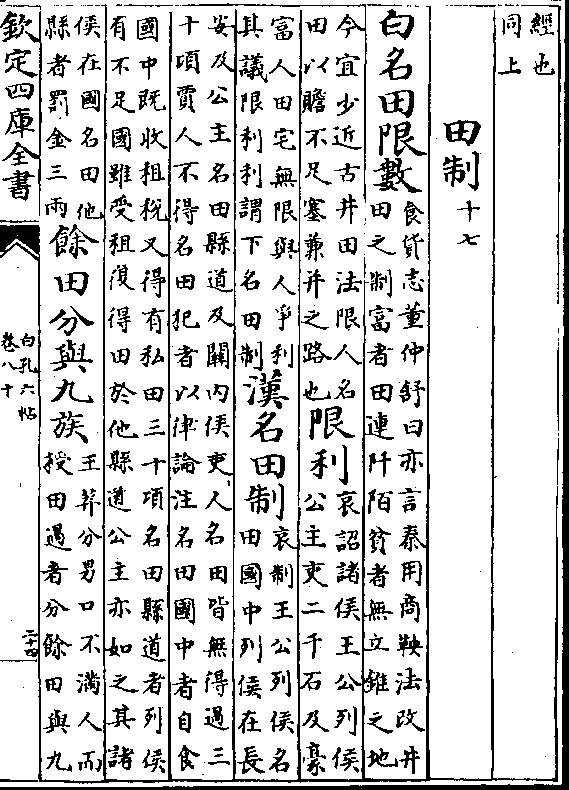 經也
同上
田制十七
白名田限數食貨志董仲舒曰亦言秦用商鞅法改井
田之制富者田連阡陌貧者無立錐之地
今宜少近古井田法限人名
田以贍不足塞兼并之路也限利哀詔諸侯王公列侯
公主吏二千石及豪
富人田宅無限與人爭利
其議限利利謂下名田制漢名田制哀制王公列侯名
田國中列侯在長
安及公主名田縣道及關内侯吏人名田皆無得過三
十頃賈人不得名田犯者以律論注名田國中者自食
國中既收租稅又得有私田三十頃名田縣道者列侯
有不足國雖受租復得田於他縣道公主亦如之其諸
侯在國名田他
縣者罰金三兩餘田分與九族王莽分男口不滿人而
授田過者分餘田與九
欽定四庫全書
白孔六帖
卷八十
二十四